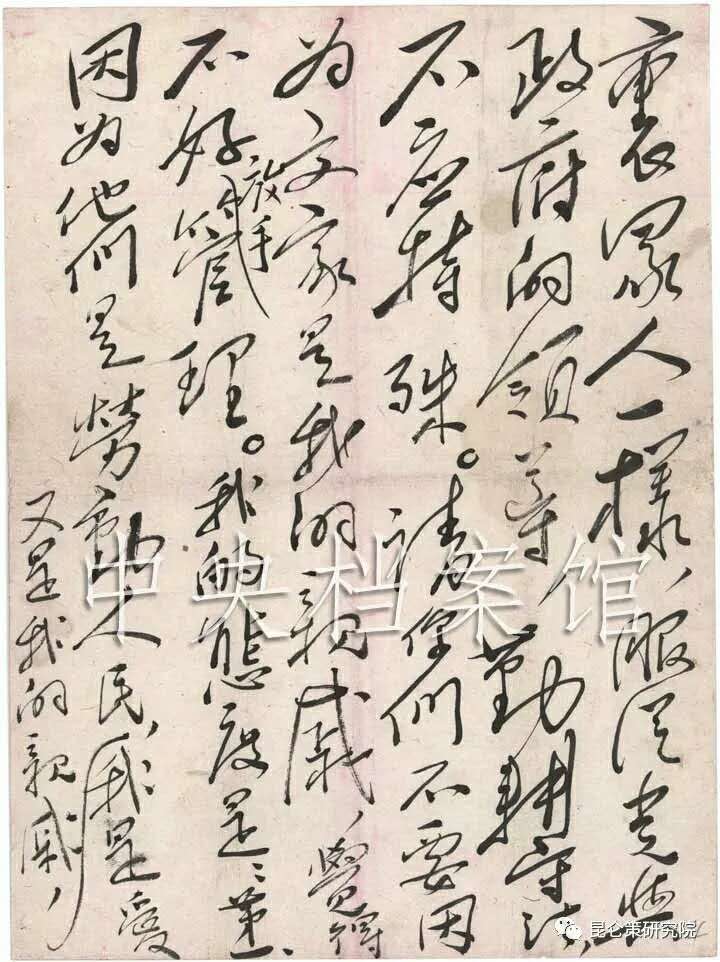 裏眾人一樣，服從党與
政府的領導，勤耕守法，
不应特殊。請你們不要因
为文家是我的親戚，覺得
不好放手管理。我的態度是：第一、
因为他們是勞動人民，又是我的親戚，我是愛
中央档案馆
昆仑策研究院